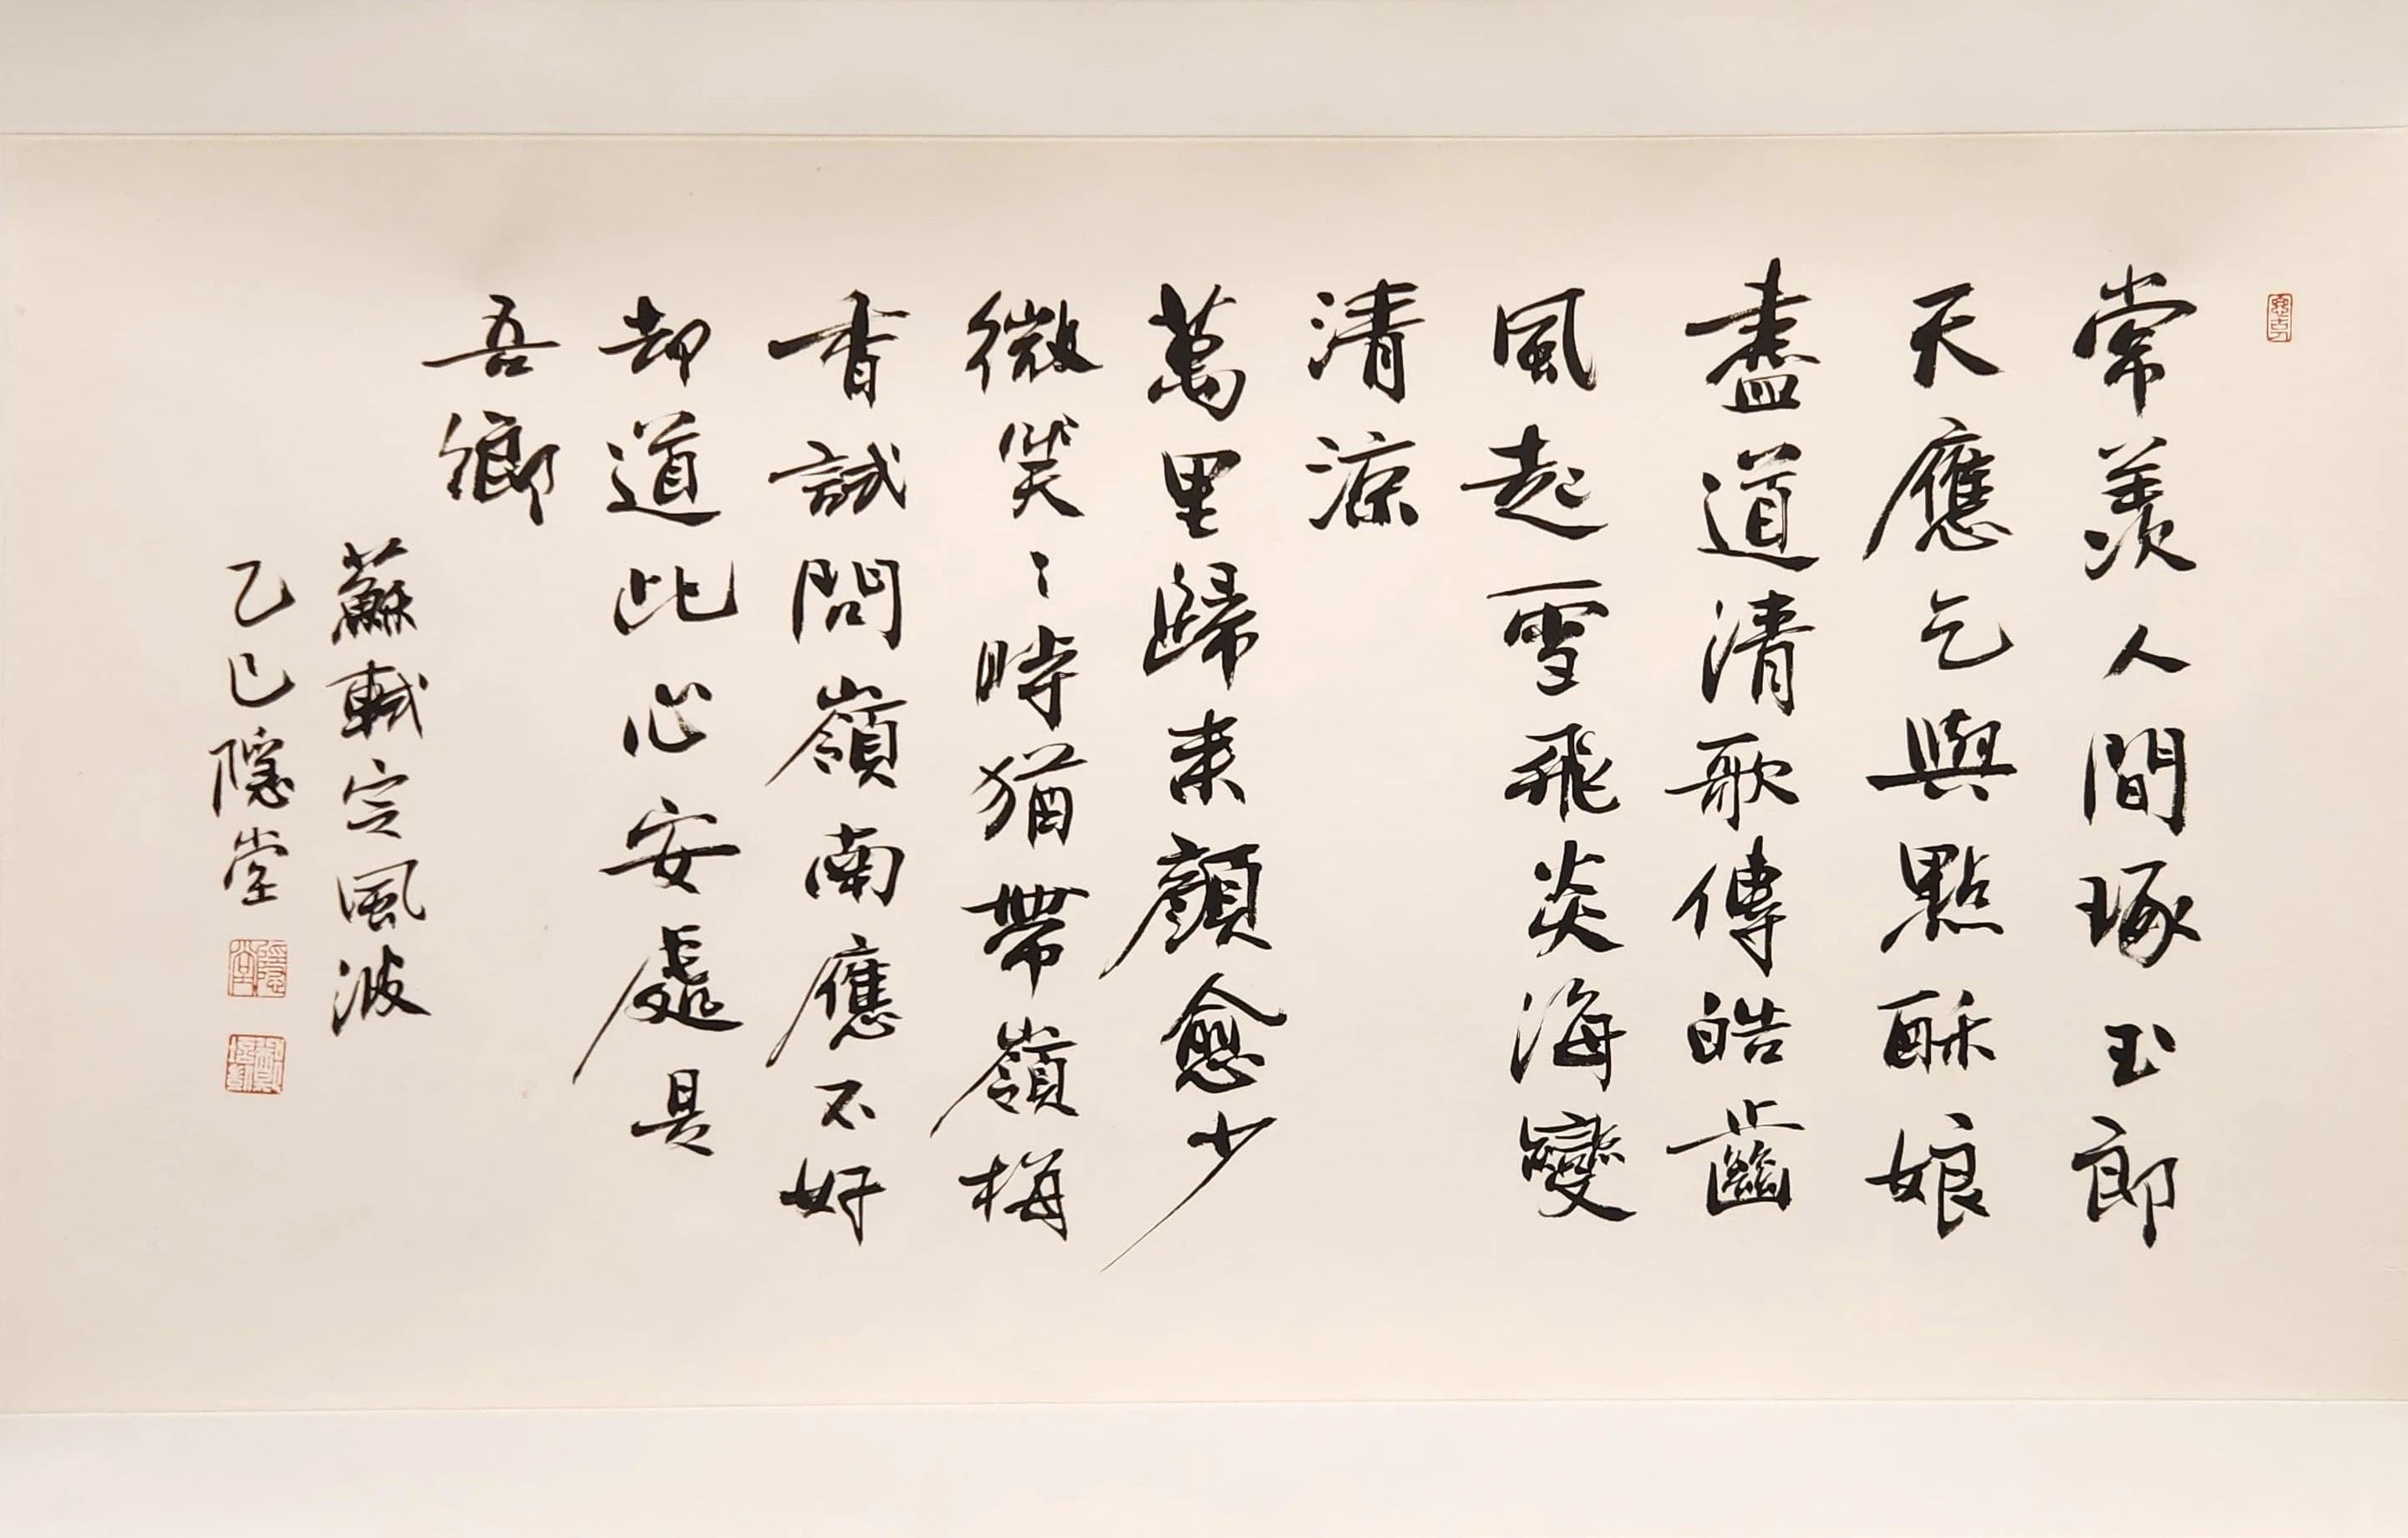 常羨人間琢玉郎
天應乞與點酥娘
盡道清歌傳皓齒
風起雪飛炎海變
清涼
萬里歸來顏愈少
微笑〻時猶帶嶺梅
香試問嶺南應不好
却道此心安處是
吾鄉
蘇軾定風波
乙巳隱堂
隱堂